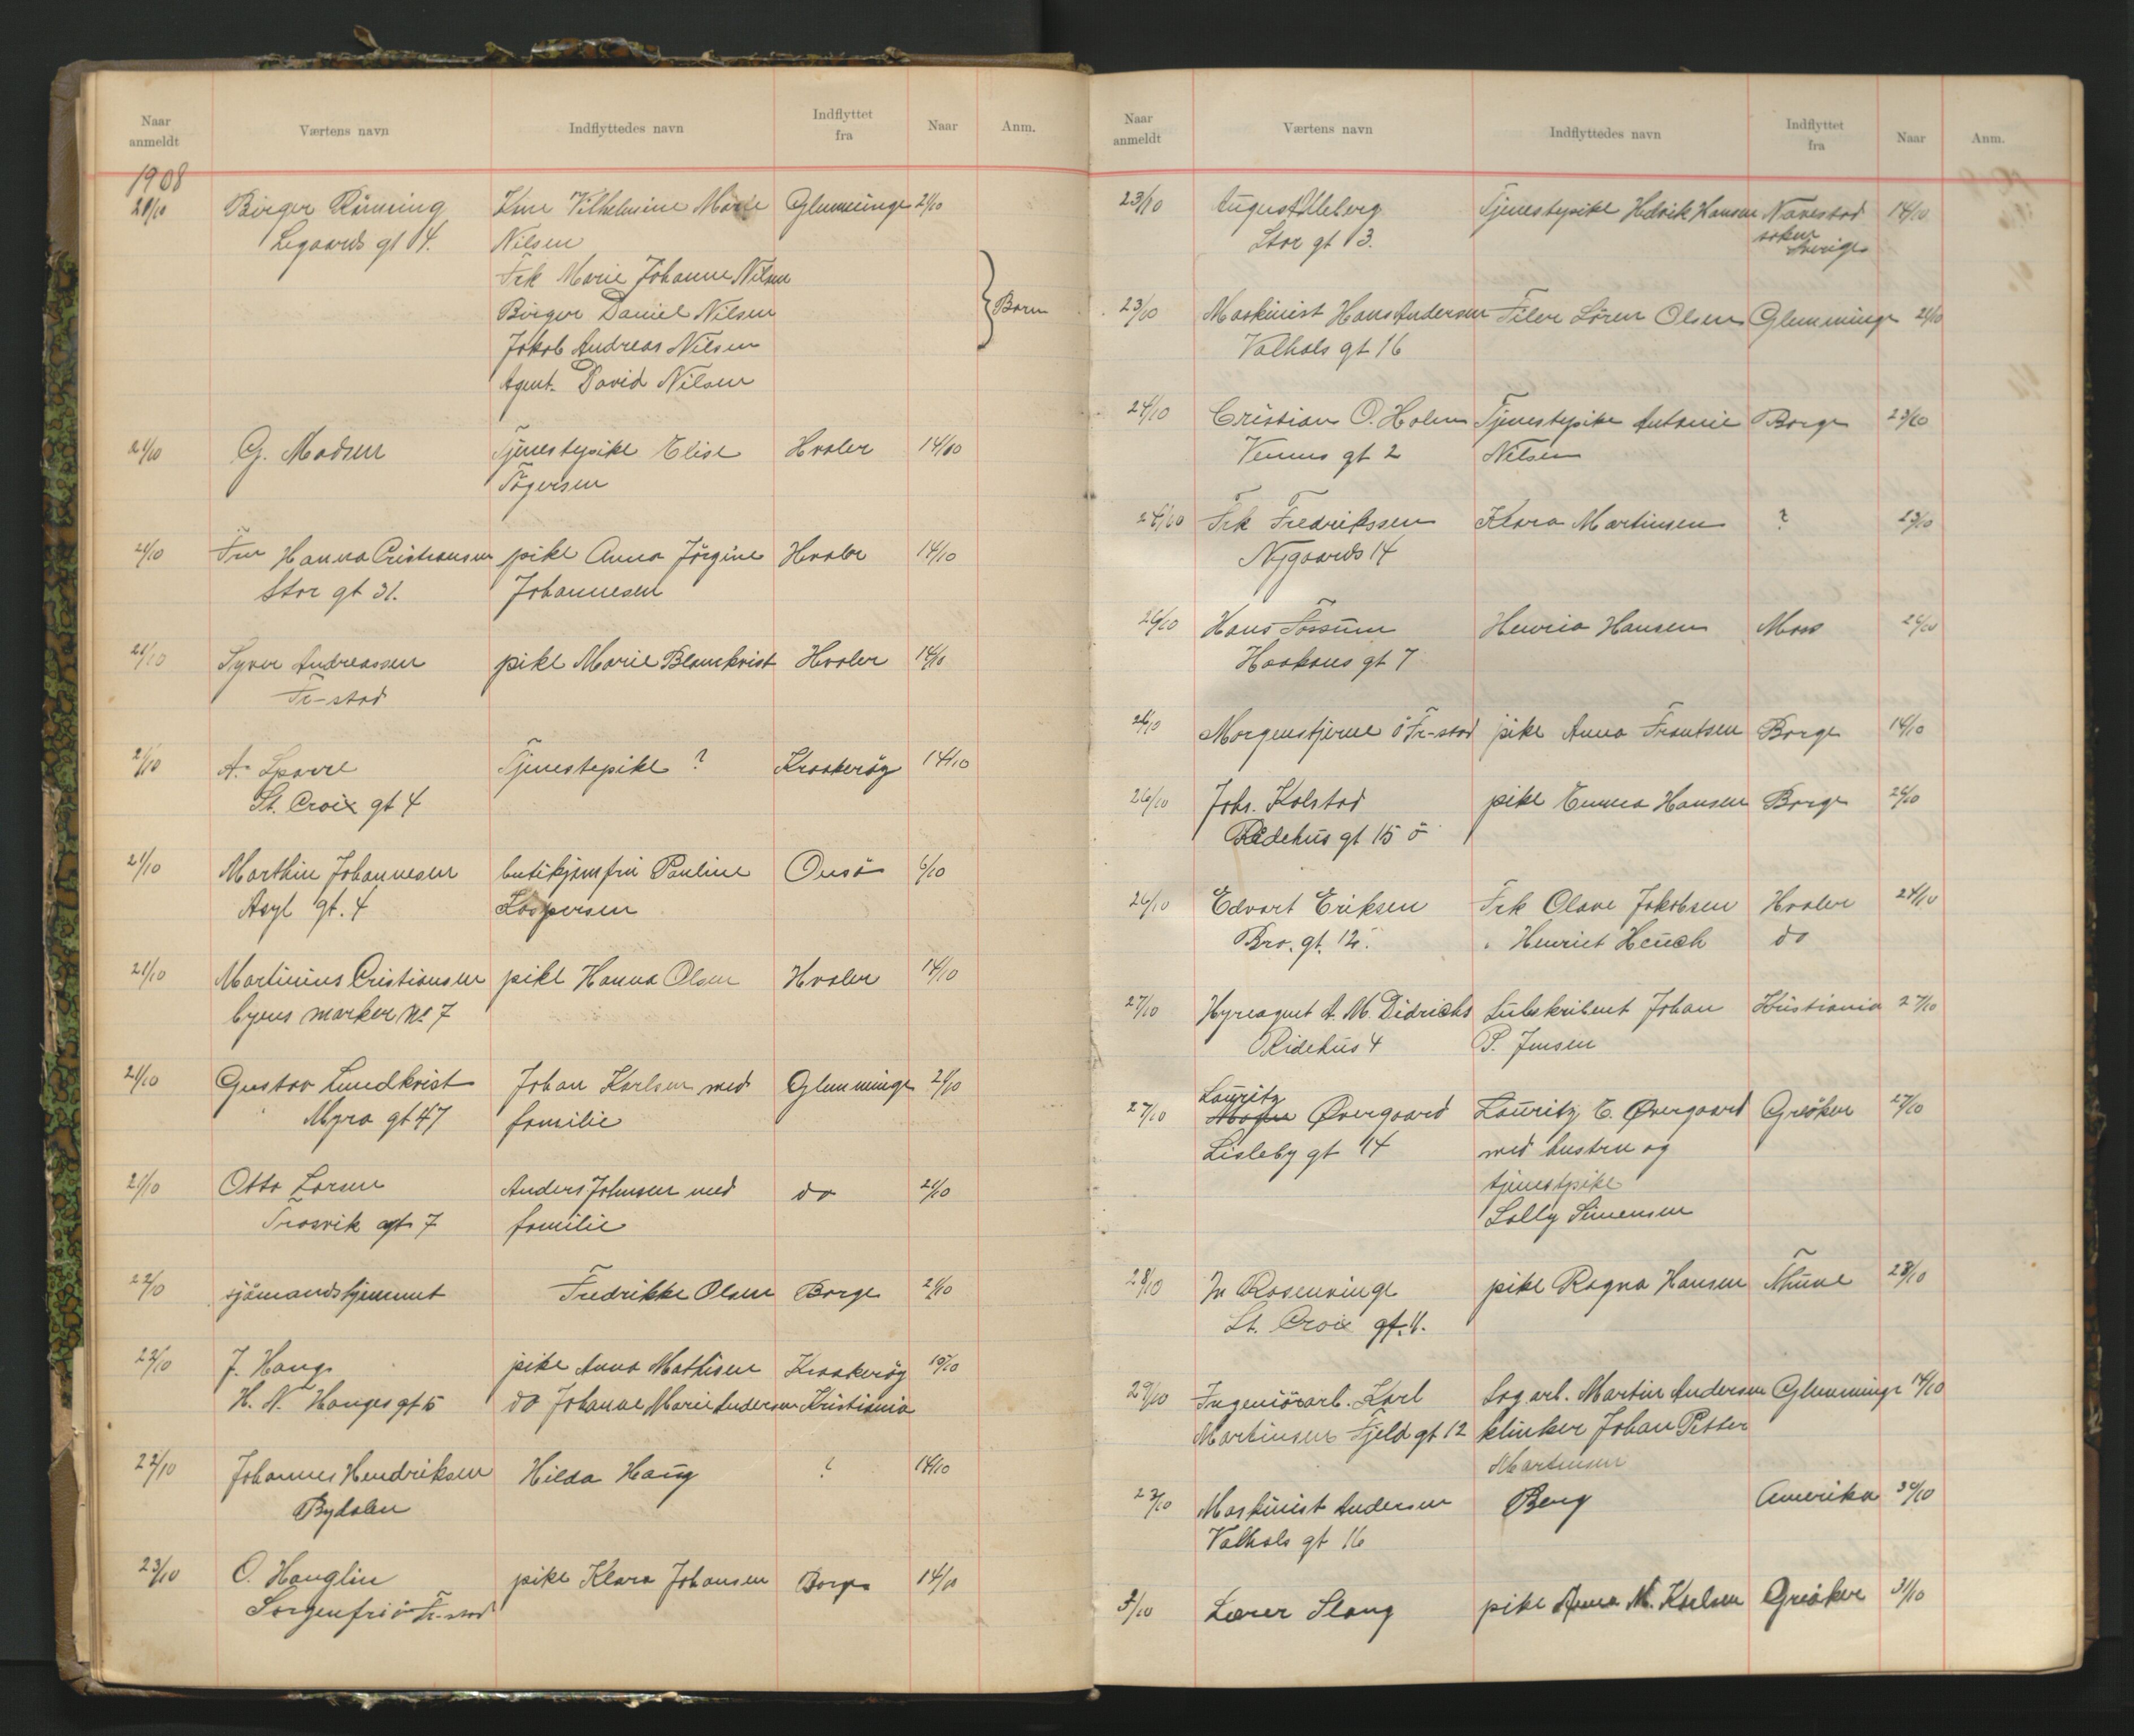 Naar anmeldt Værtens navn Indflyttedes navn Indflyttet fra Naar Anm.
1908
21/10 Birger Rönning Kone Vilhelmine Marie Glemminge 21/10
Legaards gt 4. Nilsen
Frk Marie Johanne Nilsen
Birger Daniel Nilsen } Barn
Jakob Andreas Nilsen
Agent. David Nilsen
21/10 G. Madsen Tjenestepike Elise Hvaler 14/10
Tögersen
21/10 Fru Hanna Cristiansen pike Anna Jörgine Hvaler 14/10
Stor gt 31. Johannesen
21/10 Syver Andreassen pike Marie Blomkvist Hvaler 14/10
Fr-stad
21/10 A. Sparre Tjenestepike ? Kraakeröy 14/10
St. Croix gt 4
21/10 Marthin Johannesen butikjomfru Pauline Onsö 6/10
Asyl gt. 4 Kaspersen
21/10 Martinius Cristiansen pike Hanna Olsen Hvaler 14/10
byens marker No 7
21/10 Gustav Lundkvist Johan Karlsen med Glemminge 21/10
Myra gt 47 familie
21/10 Otto Larsen Anders Johnsen med do 21/10
Trosvik gt 7 familie
22/10 sjömandshjemmet Fredrikke Olsen Borge 21/10
22/10 J. Haug pike Anna Mathisen Kraakeröy 15/10
H. N. Hauges gt 5 do Johanne Marie Andersen Kristiania
22/10 Johannes Hendriksen Hilda Haug ? 14/10
Bydalen
23/10 O. Hauglin pike Klara Johansen Borge 14/10
Sorgenfri ö Fr-stad
Naar anmeldt Værtens navn Indflyttedes navn Indflyttet fra Naar Anm.
23/10 August Ulleberg Tjenestepike Hedvik Hansen Navestad 14/10
Stor gt 3. soken Sverige
23/10 Maskinist Hans Andersen Filer Sören Olsen Glemminge 21/10
Valhals gt 16
24/10 Cristian O. Holm Tjenestepike Antonie Borge 23/10
Venus gt 2 Nilsen
24/10 Frk Fredrikssen Klara Martinsen ? 23/10
Nygaards 14
26/10 Hans Fossum Henria Hansen Moss 26/10
Haakons gt 7
26/10 Morgenstjerne ö Fr-stad pike Anna Frantsen Borge 14/10
26/10 Johs. Kolstad pike Emma Hansen Borge 26/10
Ridehus gt 15 ö
26/10 Edvart Eriksen Frk Olave Jakobsen Hvaler 24/10
Bro. gt. 12. " Henriet Heuch do
27/10 Hyreagent A. M. Didrichs Subskribent Johan Kristiania 27/10
Ridehus 4 P. Jensen
Lauritz
27/10 Övergaard Lauritz E. Övergaard Greåker 27/10
Lisleby gt 14 med hustru og
tjenestpike
Lolly Simensen
28/10 Rosenvinge pike Ragna Hansen Thune 28/10
St. Croix gt. 11.
29/10 Ingeniörarb. Karl Sag arb. Martin Andersen Glemminge 14/10
Martinsen Fjeld gt 12 klinker Johan Petter
Martinsen
Maskinist Andersen Berg Amerika 30/10
Valhals gt 16
Lærer Slang pike Anna M. Karlsen Greåker 31/10